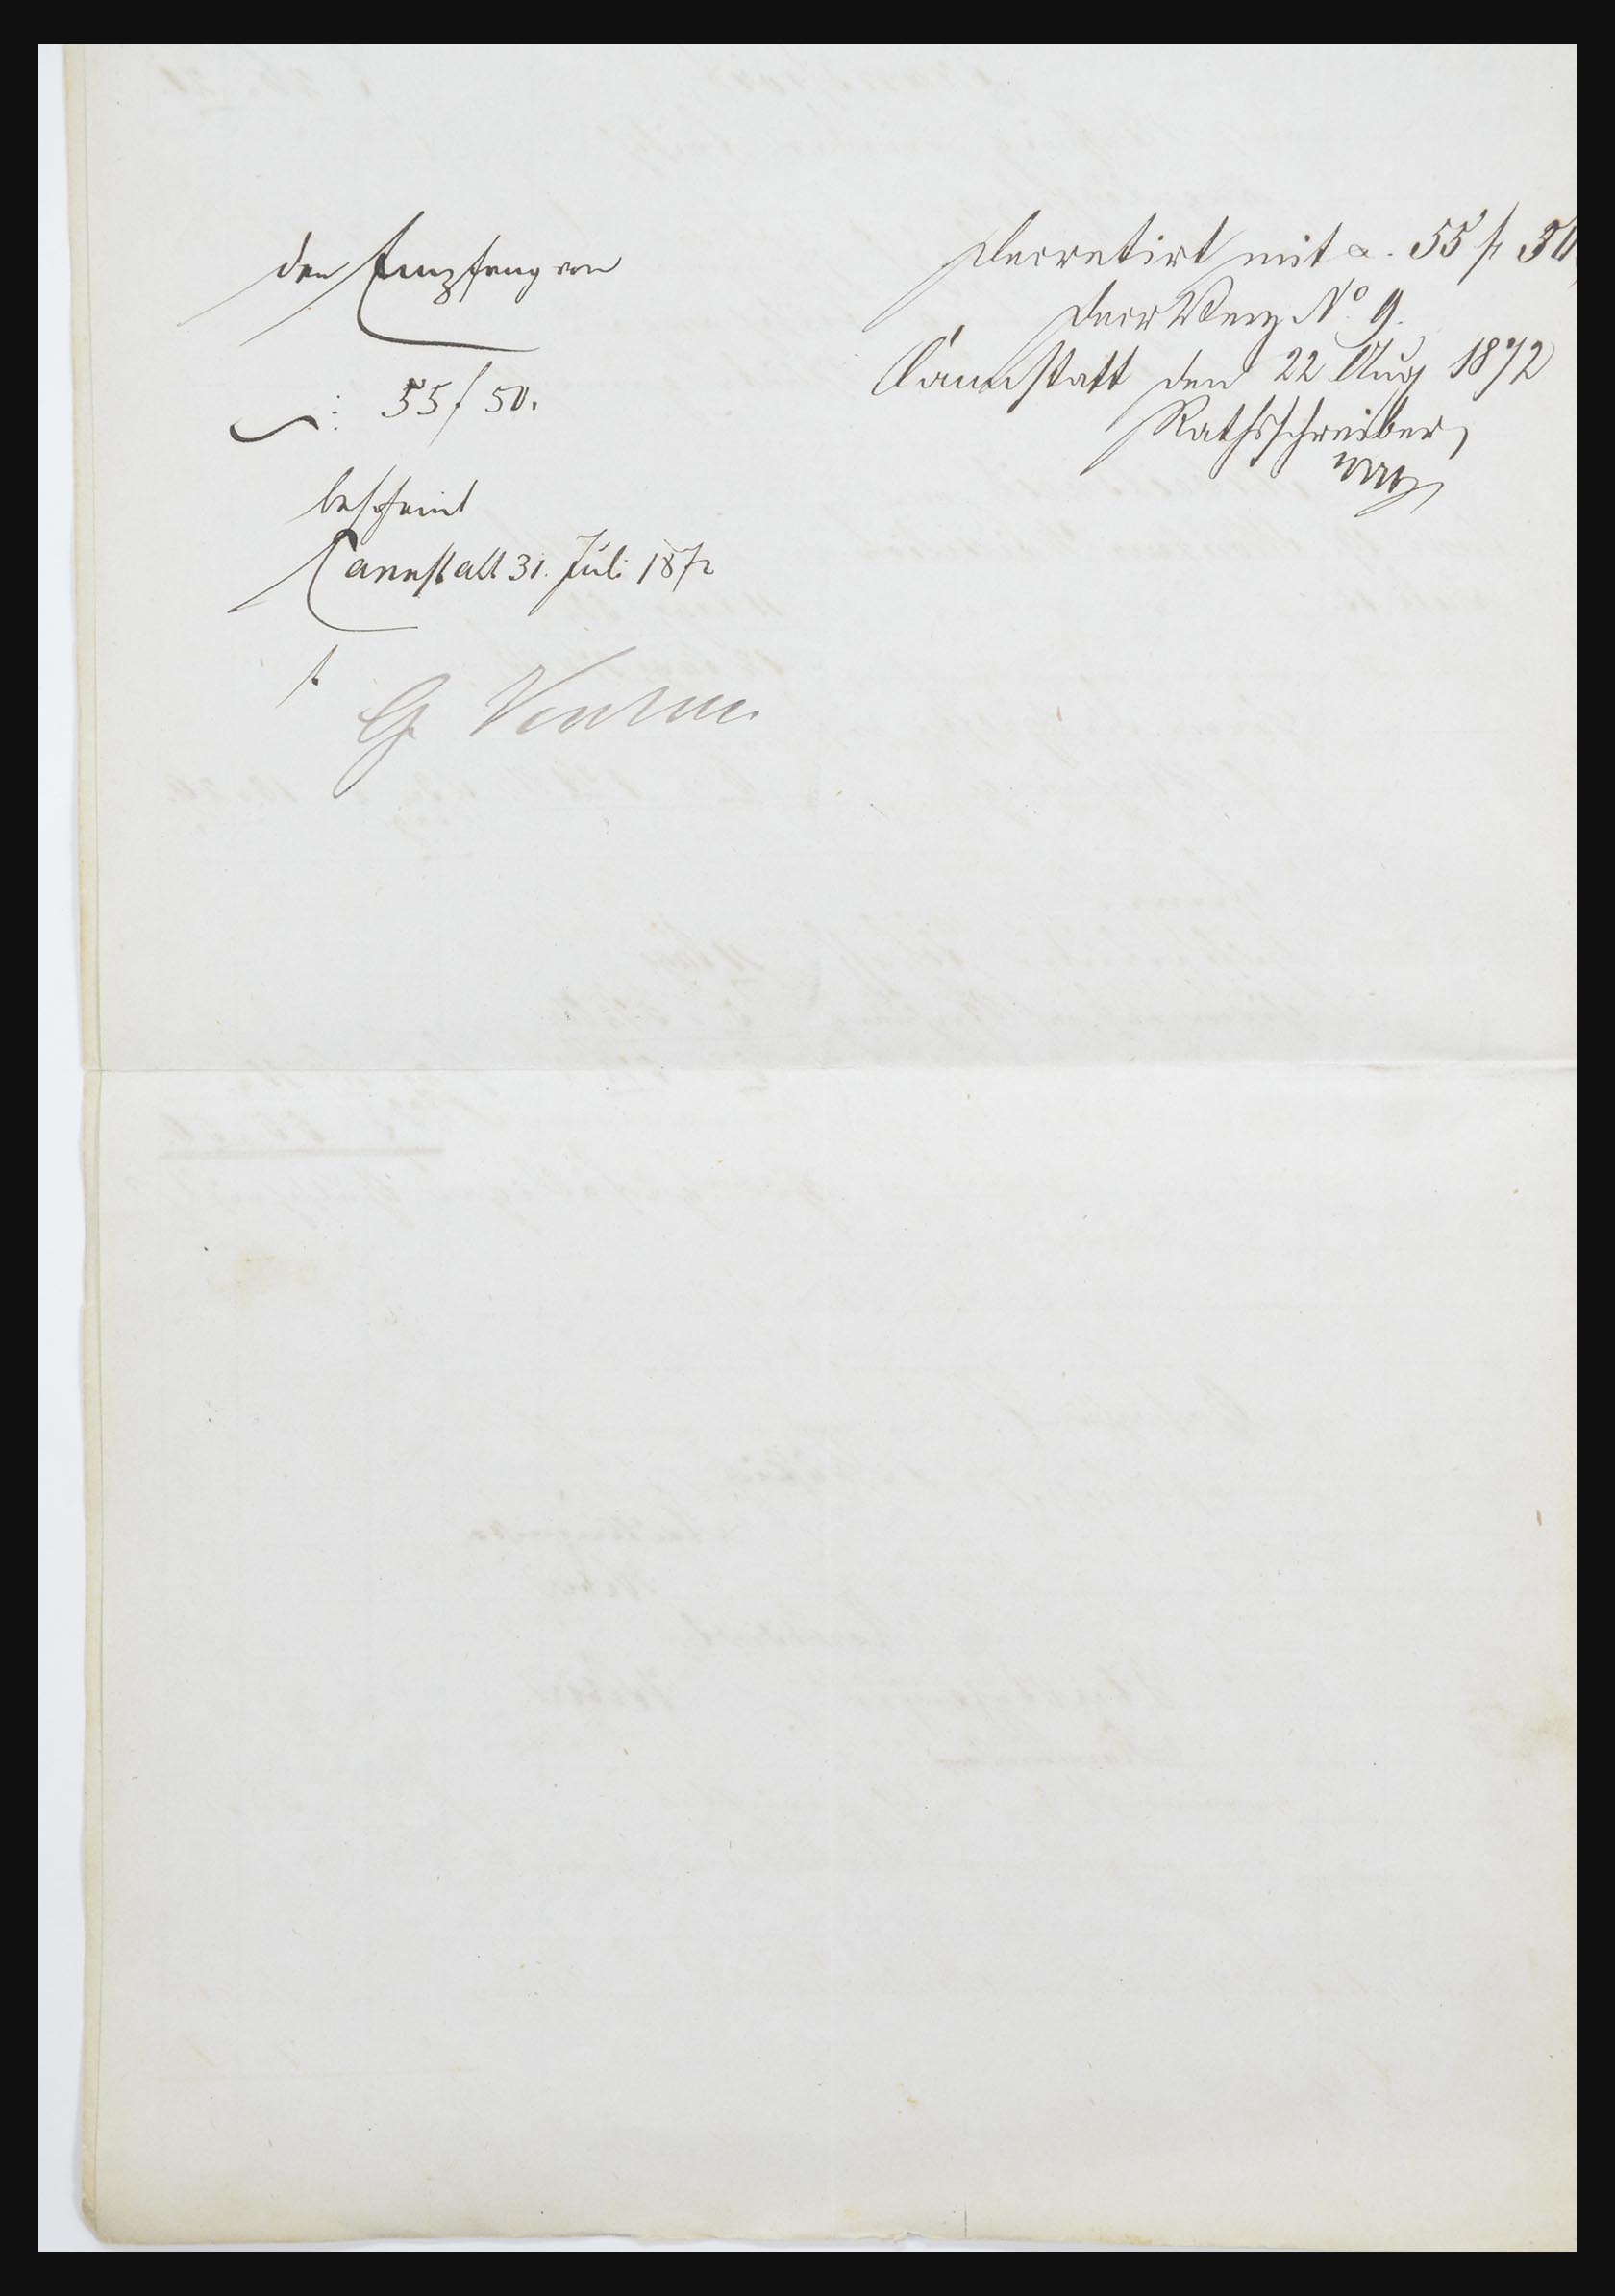 den Empfang von
: 55 f 50.
bescheint
Cannstatt 31. Juli 1872
G
Decretirt mit a. 55 f 50
Decr Verz No 9.
Cannstatt den 22 Aug 1872
Rathsschreiber